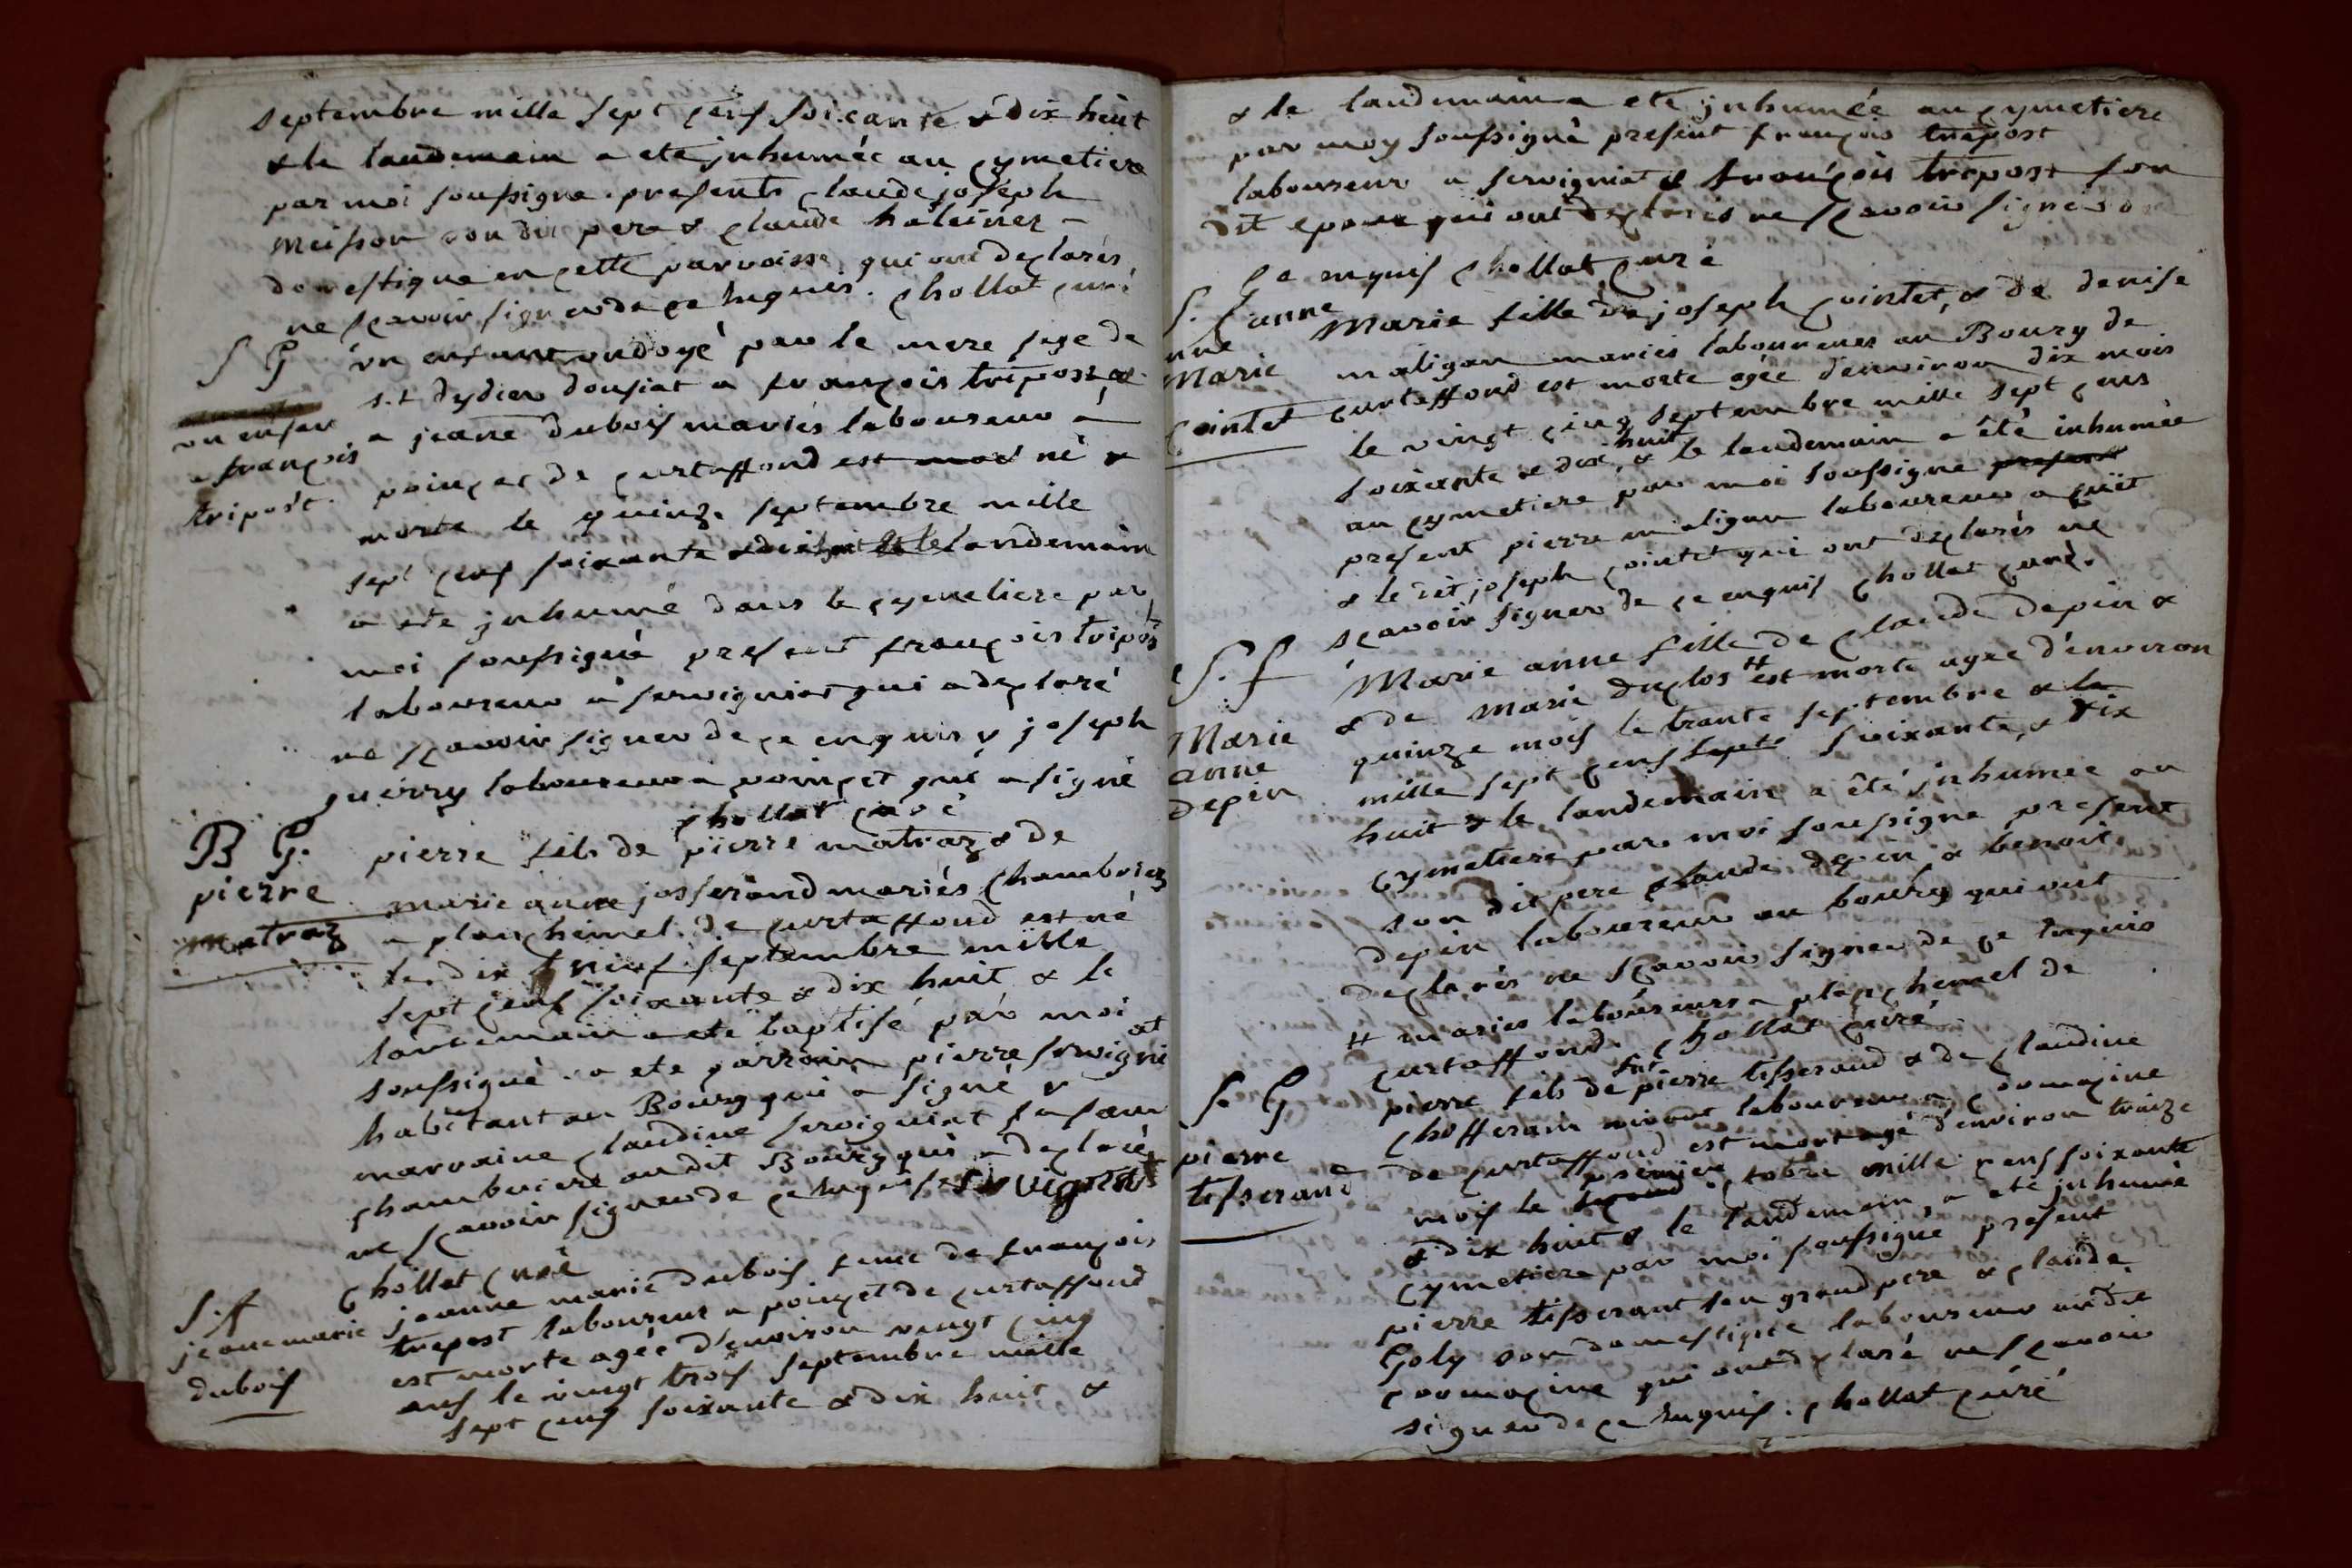 septembre mille sept cens soixante & dix huit
& le laudemain a ete inhumée au cymetiere
par moi soussigne. presents claude joseph
son dit pere & claude
domestique en cette parroisse qui ont declarés
ne scavoir signer de ce enquis. chollat curé
S G un enfant ondoyé par le mere sage de
s.t dydier doussiat a françois tripost &
un enfan a jeane dubois mariés laboureur a
a françois poinçet de curtaffond est mort né &
tripost. morte le quinze septembre mille
sept cens soixante & dix huit & le landemain
a ete inhumé dans le cymetiere par
moi soussigné present françois tripost
laboureur a servigniat qui a declaré
ne scavoir signer de ce enquis & joseph
guerry laboureur a poinçet qui a signé
chollat curé
B G. pierre fils de pierre matraz & de
pierre marie anne josserand mariés chambriez
matraz a planchemel de curtaffond est né
le dix & neuf septembre mille
sept cens soixante & dix huit & le
landemain a ete baptisé par moi
soussigné. a ete parrain pierre servigniat
habitant au Bourg qui a signé &
marraine claudine servigniat sa sœur
chambriere audit Bourg qui a declaré
ne scavoir signer de ce enquis servigniat
chollat curé
S. f jeanne marie dubois feme de françois
jeanemarie trepost laboureur a poinçet de curtaffond
dubois est morte agée d'environ vingt cinq
ans le vingt trois septembre mille
sept cens soixante & dix huit &
& le laudemain a ete inhumée au cymetiere
par moy soussigné present françois trepost
laboureur a servigniat & françois trepost son
dit epoux qui ont declarés ne scavoir signer de
ce enquis chollat curé
S. f anne Marie fille de joseph cointet, & de denise
nne maligan mariés laboureurs au Bourg de
Marie curtaffond est morte agée d'environ dix mois
cointet le vingt cinq septembre mille sept cens
soixante & dix huit, & le landemain a été inhumée
au cymetiere par moi soussigne present
present pierre maligan laboureur a
& le dit joseph cointet qui ont declarés ne
scavoir signer de ce enquis chollat curé.
S. f Marie anne fille de claude depin &
& de marie duclos # est morte agee d'environ
Marie quinze mois le trante septembre & le
anne mille sept cens septe soixante & dix
depin huit & le landemain a été inhumee au
cymetiere par moi soussigne present
son dit pere claude depin & benoit
depin laboureur au bourg qui ont
declarés ne scavoir signer de ce enquis
# mariés laboureurs a planchemel de
curtaffond. chollat curé
S. G pierre fils de fut pierre tisserand & de claudine
chosserain vivant laboureur a cormazine
pierre de curtaffond est mort agé d'environ treize
tisserand mois le segond premier octobre mille cens soixante
& dix huit & le laudemain, a ete inhumé
cymetiere par moi soussigné present
pierre tisserant son grand pere & claude
Goly son domestique laboureur audit
cormazine qui ont declaré ne scavoir
signer de ce enquis. chollat curé